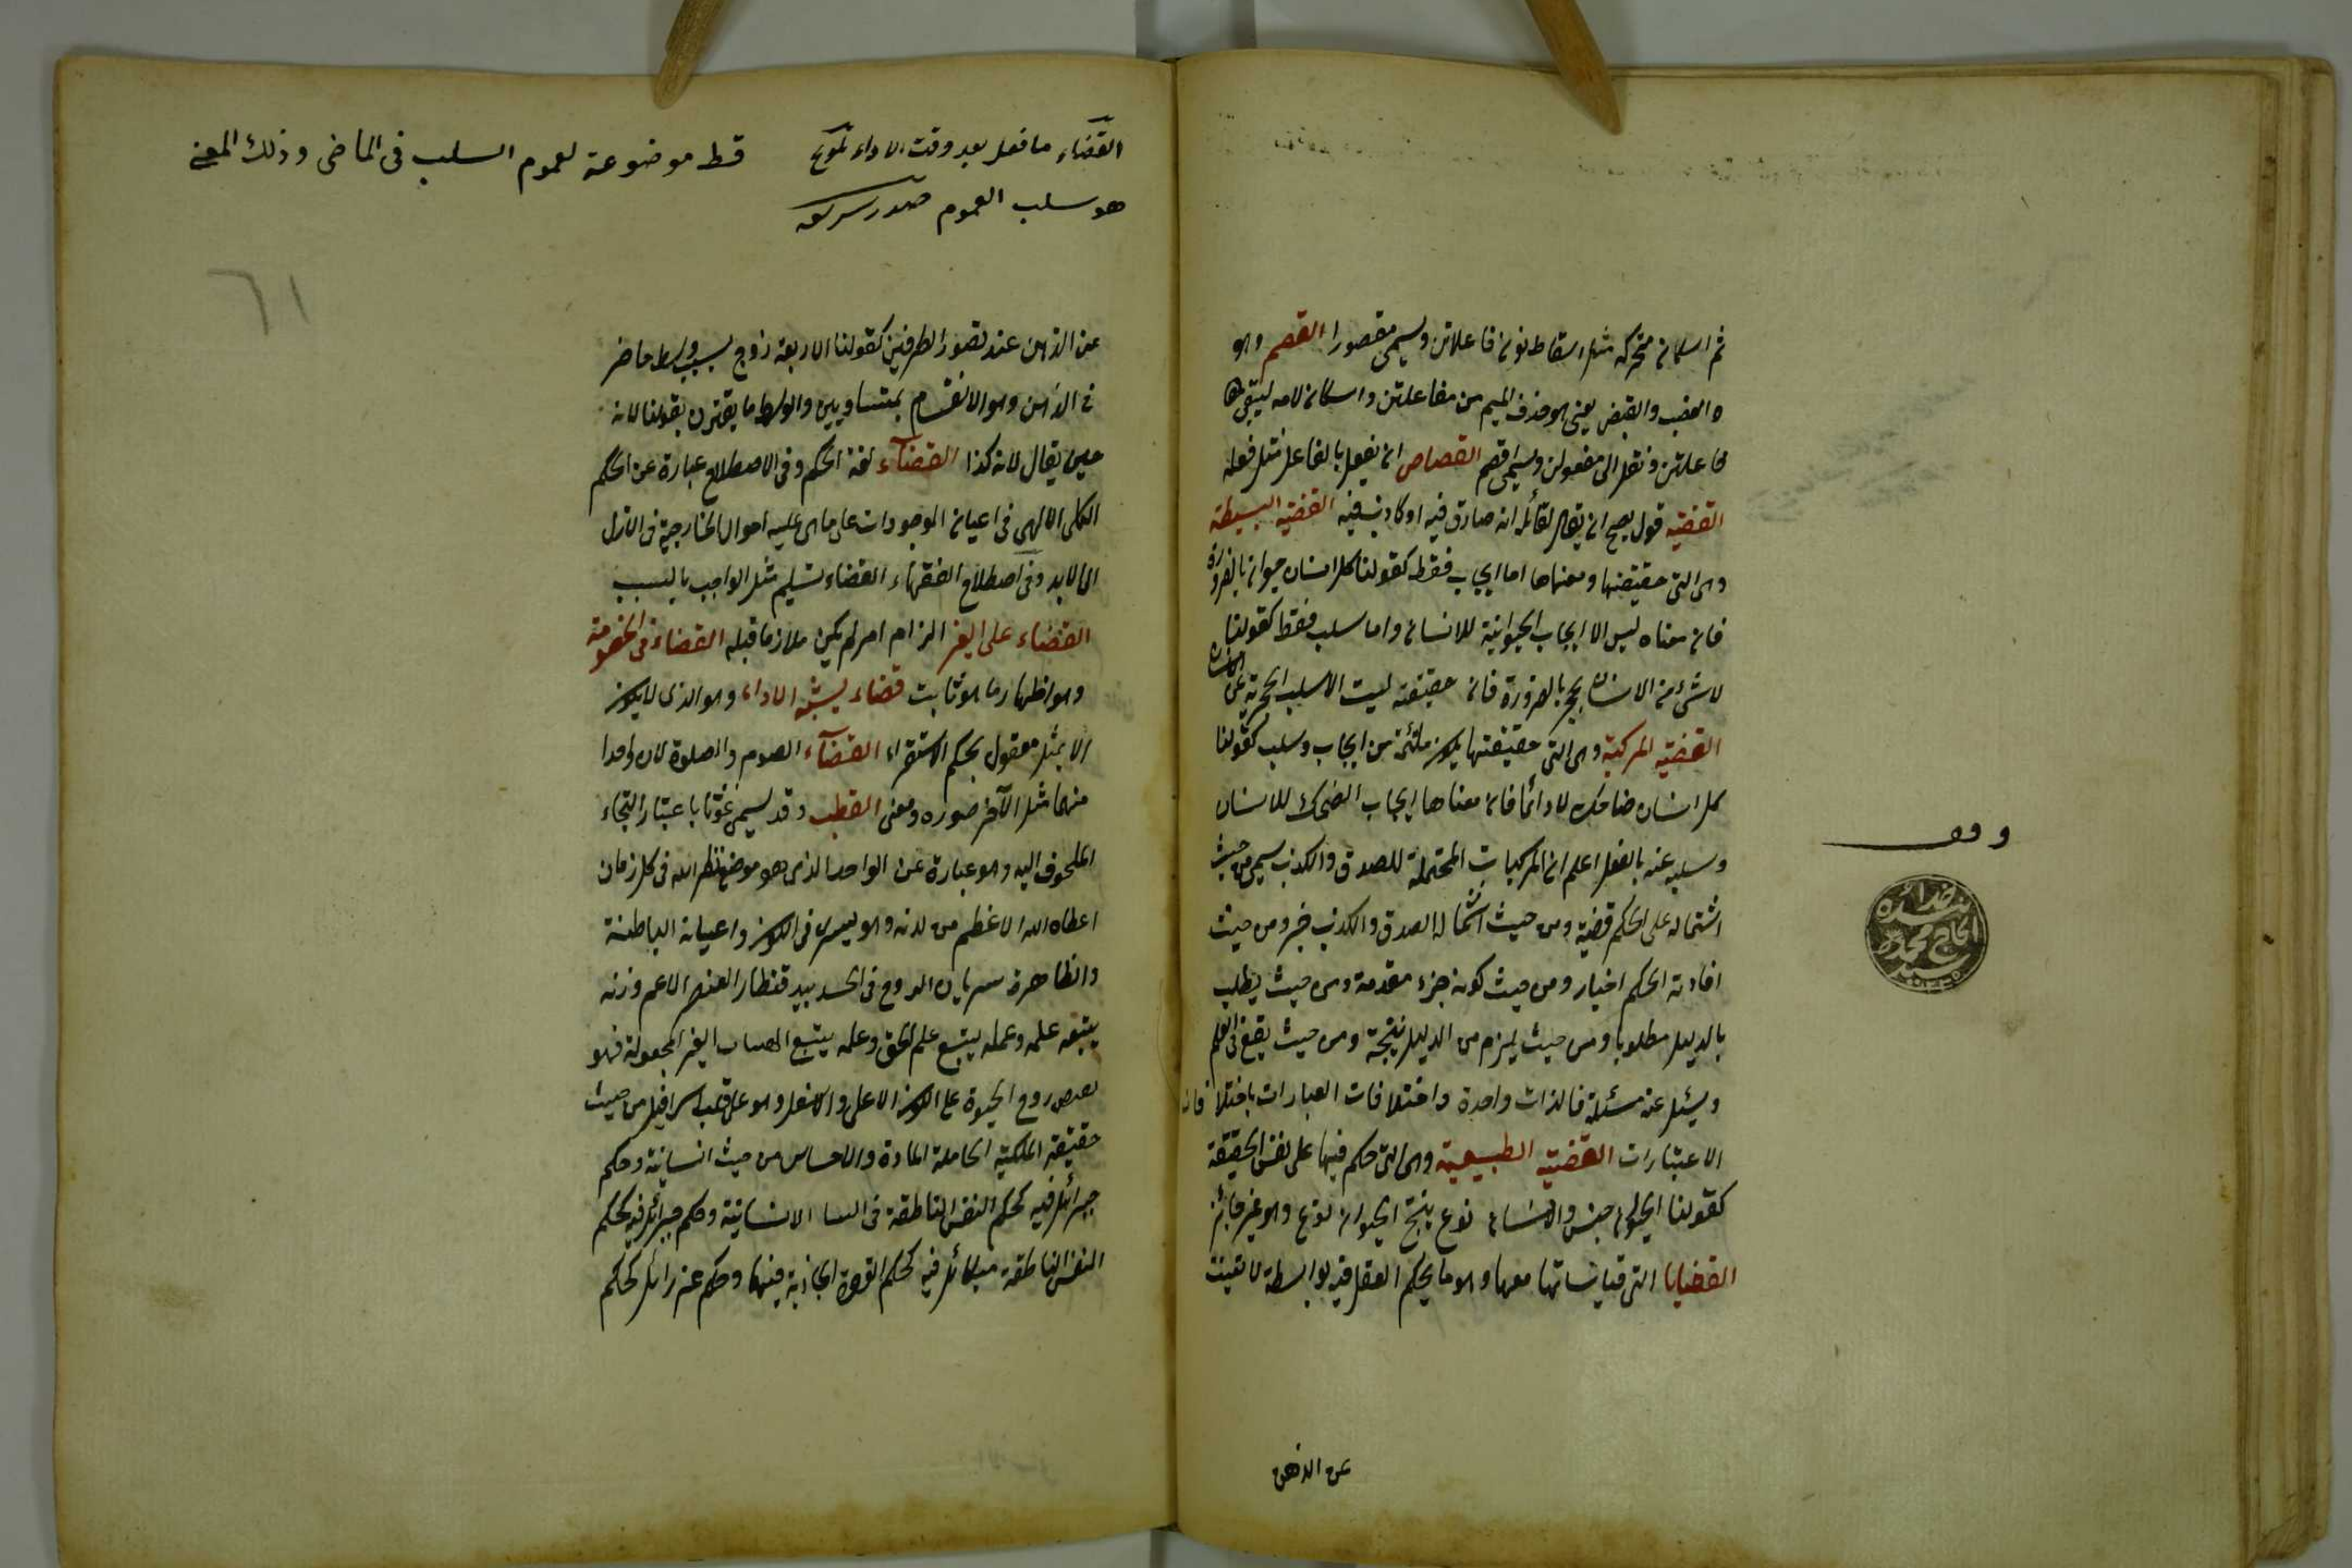 ثم اسكان متحركه مثل اسقاط نون فاعلاتن ويسمى مقصورا القصم وهو
العضب والقبض يعني هو حذف الميم من مفاعلتن واسكان لامه ليبقى
فاعلتن ونقل الى مفعولن ويسمى اقصم القصاص ان يفعل بالفاعل مثل فعله
القضية قول يصح ان يقال لقائله انه صادق فيه او كاذب فيه القضية البسيطة
وهى التى حقيقتها ومعناها اما ايجاب فقط كقولنا كل انسان حيوان بالضرورة
فان معناه ليس الا ايجاب الحيوانية للانسان واما سلب فقط كقولنا
لا شئ من الانسان بحجر بالضرورة فان حقيقته ليست الا سلب الحجرية عن الانسان
القضية المركبة وهى التى حقيقتها يكون ملتئمة من ايجاب وسلب كقولنا
كل انسان ضاحك لا دائما فان معناها ايجاب الضحك للانسان
وسلبه عنه بالفعل اعلم ان المركبات المحتملة للصدق والكذب يسمى من حيث
اشتماله على الحكم قضية ومن حيث احتماله الصدق والكذب خبر ومن حيث
افادته الحكم اخبار ومن حيث كونه جزء مقدمة ومن حيث يطلب
بالدليل مطلوبا ومن حيث يلزم من الدليل نتيجة ومن حيث يقع فى العلم
ويسئل عنه مسئلة فالذات واحدة واختلافات العبارات باختلافات
الاعتبارات القضية الطبيعية وهى التى حكم فيها على نفس الحقيقة
كقولنا الحيوان جنس والانسان نوع ينتج الحيوان نوع وهو غير جائز
القضايا التى قياساتها معها وهو ما يحكم العقل فيه بواسطة لا تغيب
عن الذهن
وقف
الحاج محمد
القضاء ما فعل بعد وقت الاداء تلويح
قط موضوعة لعموم السلب فى الماضى وذلك المعنى
هو سلب العموم
٦١
عن الذهن عند تصور الطرفين كقولنا الاربعة زوج بسبب وسط حاضر
فى الذهن وهو الانقسام بمتساويين والوسط ما يقترن بقولنا لانه
حين يقال لانه كذا القضآء لغة الحكم وفى الاصطلاح عبارة عن الحكم
الكلى الالهى فى اعيان الموجودات على ما هى عليه احوال الخارجية فى الازل
الى الابد وفى اصطلاح الفقهاء القضاء تسليم مثل الواجب بالسبب
القضاء على الغير الزام امر لم يكن ملازما قبله القضاء فى الخصومة
وهو اظهار ما هو ثابت قضاء يشبه الاداء وهو الذى لا يكون
الا بمثل معقول بحكم الاستقراء القضآء الصوم والصلوة لان واحدا
منهما مثل الآخر صورة ومعنى القطب وقد يسمى غوثا باعتبار التجاء
الملهوف اليه وهو عبارة عن الواحد الذى هو موضع نظر الله فى كل زمان
اعطاه الله الاعظم من لدنه وهو يسرى فى الكون واعيانه الباطنة
والظاهرة سريان الروح فى الجسد بيده الاعم وزنه
يتبعه علمه وعلمه يتبع علم الحق وعلمه يتبع الغير المجعولة فهو
روح الحيوة على الكون الاعلى والاسفل وهو على قلب اسرافيل من حيث
حقيقة الملكية الحاملة المادة والاحساس من حيث انسانية وحكم
جبرائيل فيه كحكم النفس الناطقة فى الانسانية وحكم جبرائيل فيه كحكم
النفس الناطقة ميكائل فيه كحكم القوة الجاذبة فيها وحكم عزرائل كحكم